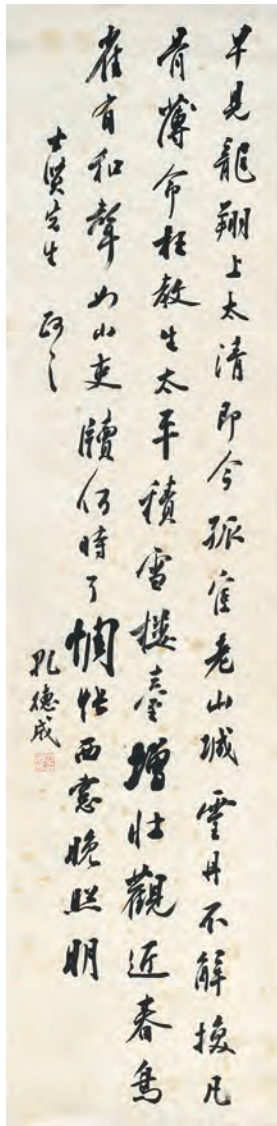 早見龍翔上太清即今孤宦老山城靈丹不解換凡
骨薄命枉教生太平積雪樓臺增壯觀近春鳥
雀有和聲如山吏牘何時了惆悵西窗晚照明
士先生 政之
孔德成